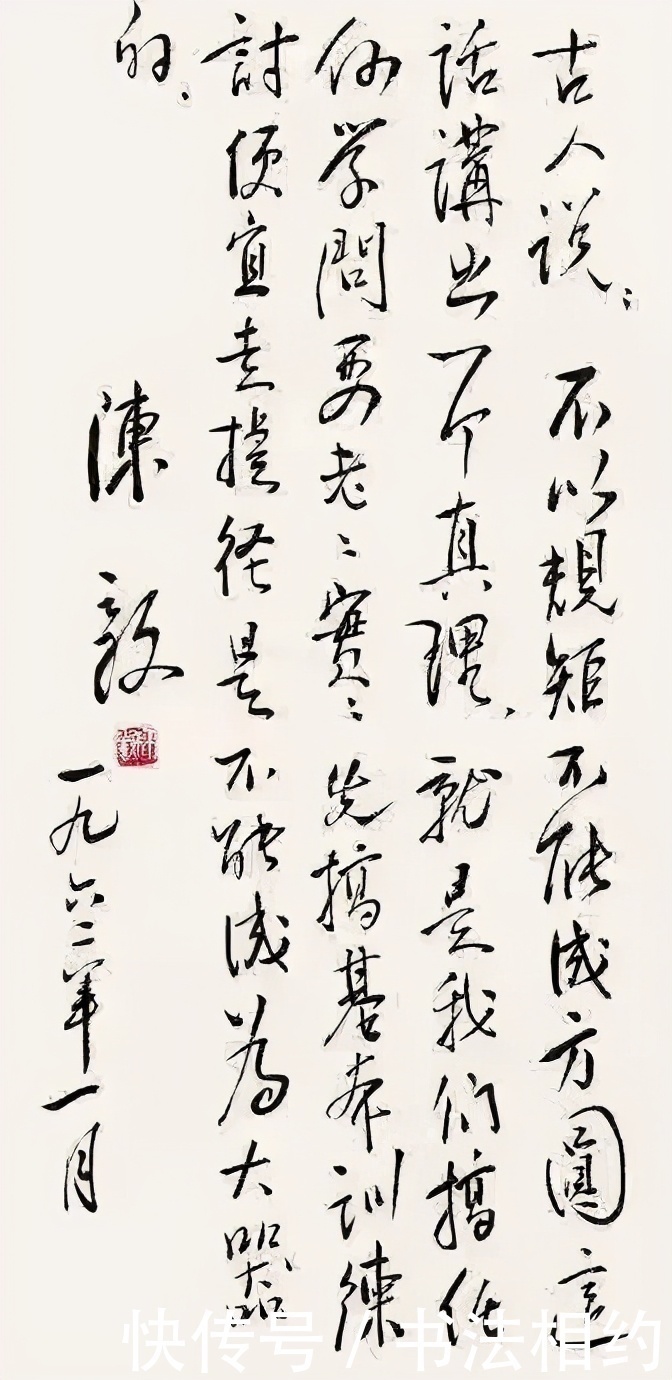 古人说：不以規矩不能成方圓这
話講出一个真理、就是我们搞任
何学問要老々實々先搞基本訓練
討便宜走捷径是不能成为大器
的、
陳毅
一九六二年一月
快传号/书法相约